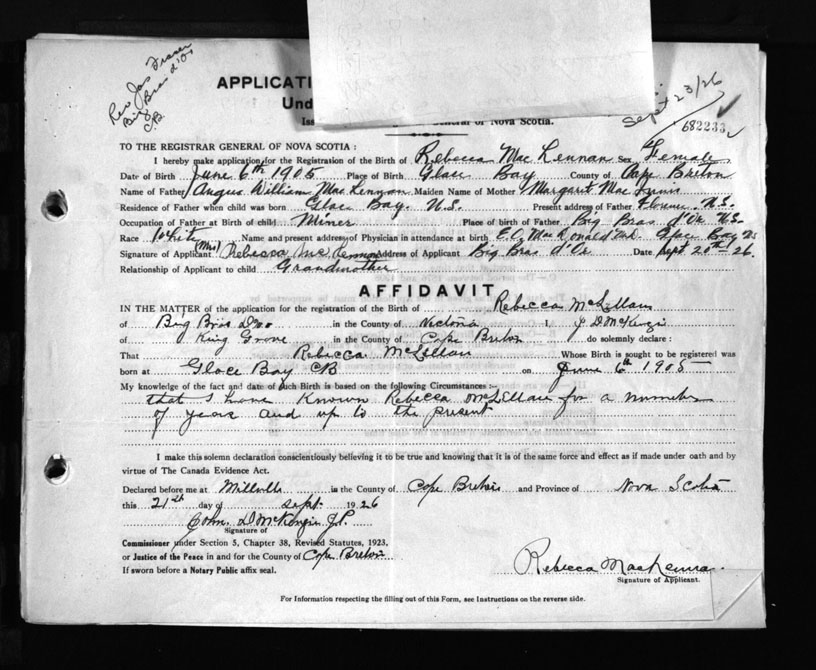 Rev Jas Fraser
Big Bras d'Or
C.B.
Sept 23/26
682233
APPLICATI
Und
Iss
General of Nova Scotia.
TO THE REGISTRAR GENERAL OF NOVA SCOTIA :
I hereby make application for the Registration of the Birth of Rebecca Mac Lennan Sex Female
Date of Birth June 6th 1905 Place of Birth Glace Bay County of Cape Breton
Name of Father Angus William Mac Lennan Maiden Name of Mother Margaret Mac Innis
Residence of Father when child was born Glace Bay. N.S. Present address of Father N.S.
Occupation of Father at Birth of child Miner Place of birth of Father Big Bras d'Or N.S.
Race White Name and present address of Physician in attendance at birth MacDonald Glace Bay
Signature of Applicant (Mrs) Rebecca Mc Lennan Address of Applicant Big Bras d'Or Date Sept. 20th 26.
Relationship of Applicant to child Grandmother
AFFIDAVIT
IN THE MATTER of the application for registration of the Birth of Rebecca McLellan
of Big Bras Dor in the County of Victoria I, J D McKenzie
of King Grove in the County of Cape Breton do solemnly declare :
That Rebecca McLellan Whose Birth is sought to be registered was
born at Glace Bay CB on June 6th 1905
My knowledge of the fact and date of such Birth is based on the following Circumstances :-
that I have Known Rebecca McLellan for a number
of years and up to the present
I make this solemn declaration conscientiously believing it to be true and knowing that it is of the same force and effect as if made under oath and by
virtue of The Canada Evidence Act.
Declared before me at Millville in the County of Cape Breton and Province of Nova Scotia
this 21st day of Sept. 1926
John D McKenzie J.P.
Signature of
Commissioner under Section 5, Chapter 38, Revised Statutes, 1923.
or Justice of the Peace in and for the County of Cape Breton
If sworn before a Notary Public affix seal.
Rebecca MacLennan
Signature of Applicant.
For Information respecting the filling out of this Form, see Instructions on the reverse side.